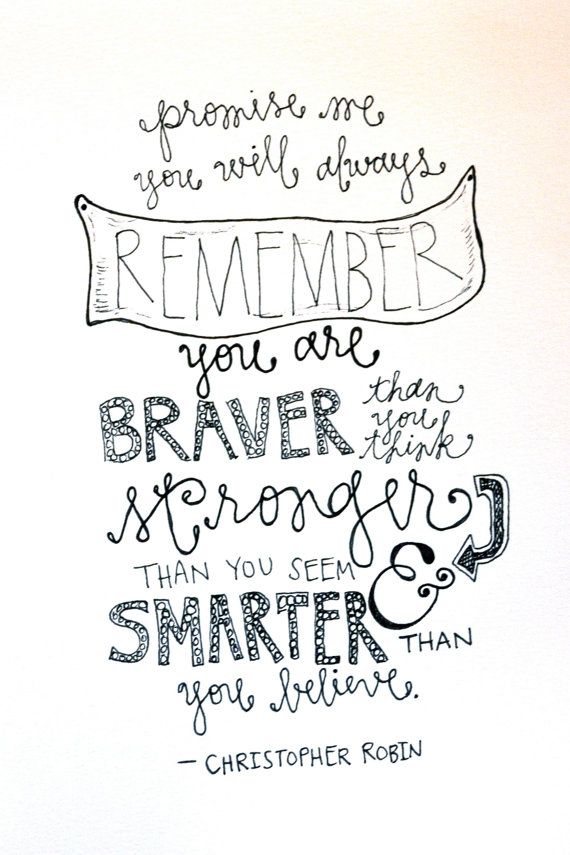 promise me
you will always
REMEMBER
you are
BRAVER than
you
think
stronger
THAN YOU SEEM &
SMARTER THAN
you believe.
— CHRISTOPHER ROBIN